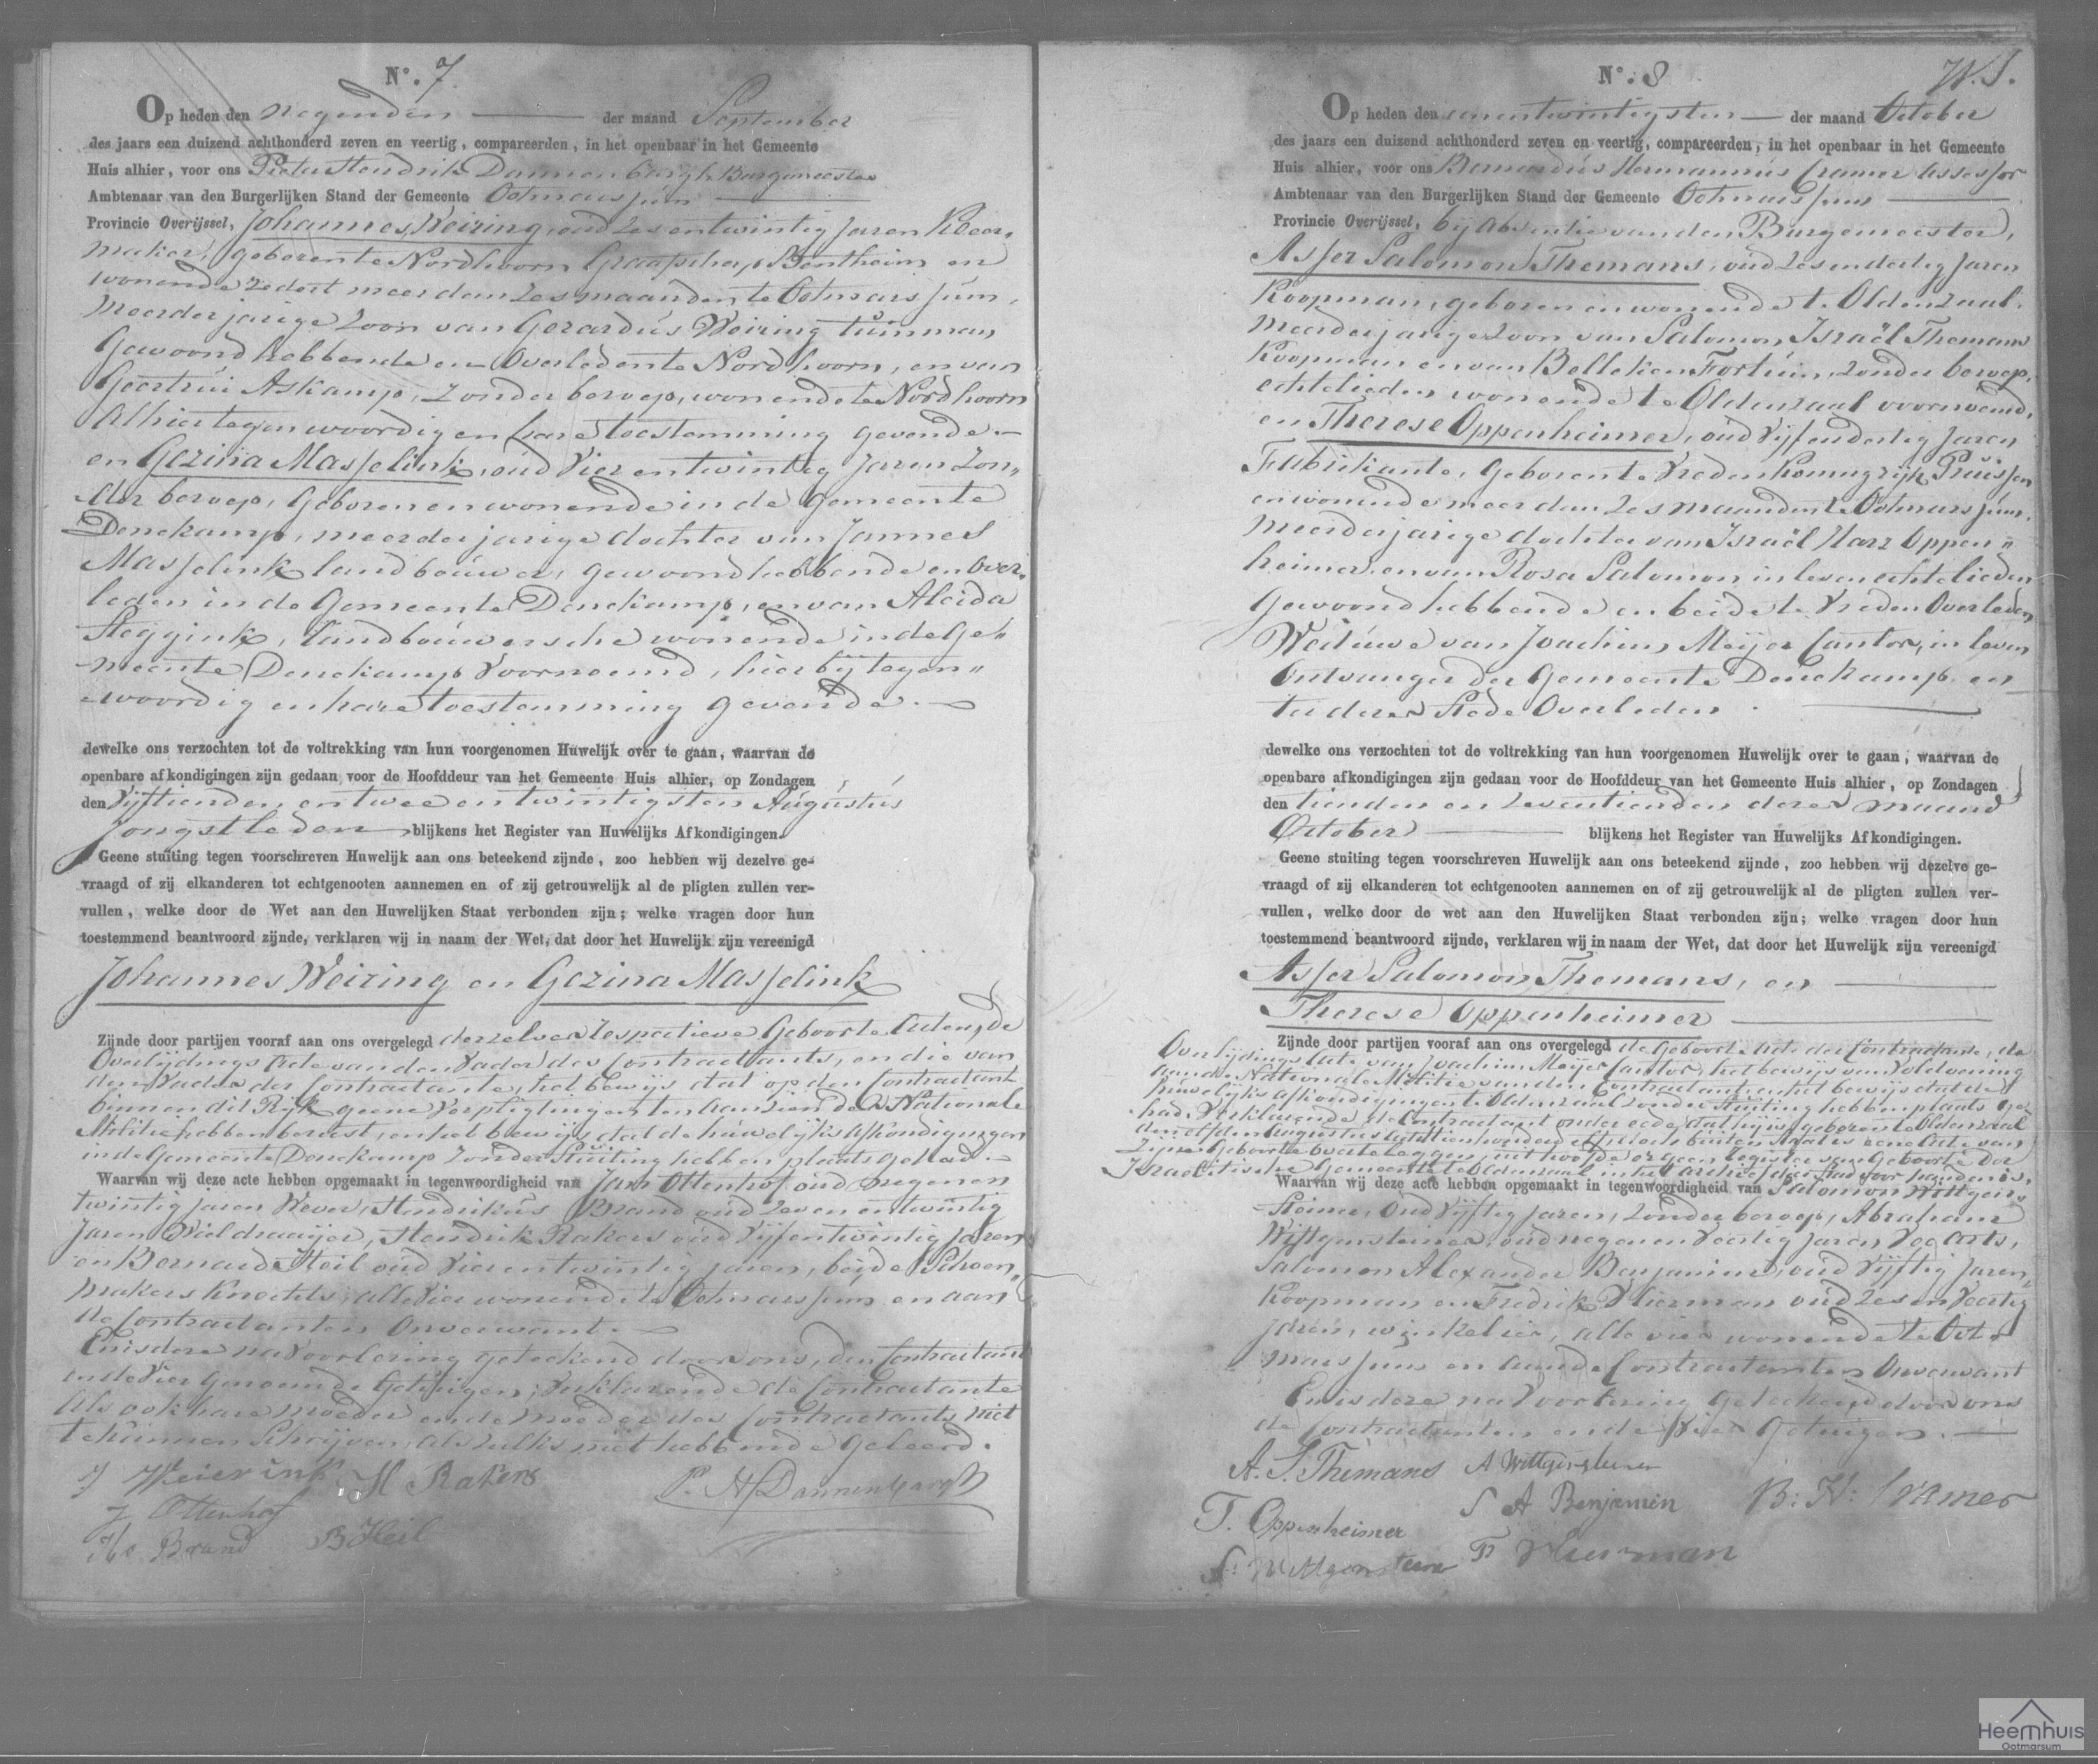 N°. 7
Op heden den negenden der maand September
des jaars een duizend achthonderd zeven en veertig, compareerden, in het openbaar in het Gemeente
Huis alhier, voor ons Pieter Hendrik Dannenbargh Burgemeester
Ambtenaar van den Burgerlijken Stand der Gemeente Ootmarssum
Provincie Overijssel, Johannes Weiring, oud zes entwintig Jaren
maker, geboren te Nordhoorn Graafschap Bentheim en
wonende zedert meer dan zes maanden te Ootmarssum,
Meerderjarige Zoon van Gerardus Weiring tuinman,
Gewoond hebbende en Overleden te Nordhoorn, en van
Geertrui Askamp, zonder beroep, wonende te Nordhoorn
Alhier tegenwoordig en hare toestemming gevende
en Gezina Masselink, oud Vier entwintig Jaren Zon„
der beroep, geboren en wonende in de Gemeente
Denekamp, meerderjarige dochter van Jannes
Masselink landbouwer, gewoond hebbende en over„
leden in de Gemeente Denekamp, en van Aleida
Steggink, landbouwersche wonende in de Ge„
meente Denekamp Voornoemd, hierbij tegen„
woordig en hare toestemming gevende.
dewelke ons verzochten tot de voltrekking van hun voorgenomen Huwelijk over te gaan, waarvan de
openbare afkondigingen zijn gedaan voor de Hoofddeur van het Gemeente Huis alhier, op Zondagen
den Vijftienden en twee en twintigsten Augustus
Jongstleden blijkens het Register van Huwelijks Afkondigingen.
Geene stuiting tegen voorschreven Huwelijk aan ons beteekend zijnde, zoo hebben wij dezelve ge-
vraagd of zij elkanderen tot echtgenooten aannemen en of zij getrouwelijk al de pligten zullen ver-
vullen, welke door de Wet aan den Huwelijken Staat verbonden zijn; welke vragen door hun
toestemmend beantwoord zijnde, verklaren wij in naam der Wet, dat door het Huwelijk zijn vereenigd
Johannes Weiring en Gezina Masselink
Zijnde door partijen vooraf aan ons overgelegd derzelver respectieve Geboorte Acten, de
Overlijdings Acte van den Vader des Contractants, en die van
den Vader der Contractante, het bewijs dat op den Contractant
binnen dit Rijk geene Verpligtingen ten Aanzien der Nationale
Militie hebben berust, en het bewijs dat de huwelijks Afkondigingen
in de Gemeente Denekamp Zonder Stuiting hebben plaats gehad
Waarvan wij deze acte hebben opgemaakt in tegenwoordigheid van Jan Ottenhof oud negenen
twintig jaren Wever, Hendrikus Brand oud zeven entwintig
Jaren Wieldraaijer, Hendrik Rakers oud Vijf entwintig Jaren
en Bernard Heil oud Vier entwintig jaren, beijde Schoen„
makers Knechts, alle Vier wonende te Ootmarssum en aan
de Contractanten Onverwant.
En is deze na Voorlezing geteekend door ons, den Contractant
en de Vier genoemde Getuigen, verklarende de Contractante
Als ook hare moeder en de moeder des Contractants niet
te kunnen Schrijven, als zulks niet hebbende geleerd.
J Weierink H Rakers P. H Dannenbargh
J Ottenhof
H. Brand B Heil
N°. 8
Op heden den eenentwintigsten der maand October
des jaars een duizend achthonderd zeven en veertig, compareerden, in het openbaar in het Gemeente
Huis alhier, voor ons Bernardus Hermannus Cramer Assessor
Ambtenaar van den Burgerlijken Stand der Gemeente Ootmarssum
Provincie Overijssel, bij Absentie van den Burgemeester,
Asser Salomon Themans, oud zesendertig Jaren
Koopman, geboren en wonende te Oldenzaal,
Meerderjarige zoon van Salomon Israël Themans
Koopman en van Belleken Fortuin, zonder beroep,
echtelieden wonende te Oldenzaal voornoemd,
en Therese Oppenheimer, oud Vijfendertig Jaren
Fabrikante, Geboren te Vreden Koningrijk Pruissen
en wonende meer dan zes maanden te Ootmarssum,
Meerderjarige dochter van Israël Harz Oppen„
heimer en van Rosa Salomon in leven echtelieden
Gewoond hebbende en beide te Vreden Overleden
Weduwe van Joachim Meijer Cantor, in leven
Ontvanger der Gemeente Denekamp en
ter dezer Stede Overleden.
dewelke ons verzochten tot de voltrekking van hun voorgenomen Huwelijk over te gaan, waarvan de
openbare afkondigingen zijn gedaan voor de Hoofddeur van het Gemeente Huis alhier, op Zondagen
den tienden en zeventienden dezer maand
October blijkens het Register van Huwelijks Afkondigingen.
Geene stuiting tegen voorschreven Huwelijk aan ons beteekend zijnde, zoo hebben wij dezelve ge-
vraagd of zij elkanderen tot echtgenooten aannemen en of zij getrouwelijk al de pligten zullen ver-
vullen, welke door de wet aan den Huwelijken Staat verbonden zijn; welke vragen door hun
toestemmend beantwoord zijnde, verklaren wij in naam der Wet, dat door het Huwelijk zijn vereenigd
Asser Salomon Themans, en
Therese Oppenheimer
Zijnde door partijen vooraf aan ons overgelegd de Geboorte Acte der Contractante, de
Overlijdings Acte van Joachim Meijer Cantor, het bewijs van Voldoening
aan de Nationale Militie van den Contractant en het bewijs dat de
huwelijks afkondigingen te Oldenzaal zonder Stuiting hebben plaats ge-
had, Verklarende de Contractant onder eede dat hij is geboren te Oldenzaal
den elfden Augustus achttienhonderd elf buiten Staat is eene Acte van
Zijne Geboorte over te leggen, uit hoofde er geen register van Geboorte der
Israelitische Gemeente te Oldenzaal in het archief dier Stad voor handen is.
Waarvan wij deze acte hebben opgemaakt in tegenwoordigheid van Salomon Wittgen„
steiner, Oud Vijftig Jaren, zonder beroep, Abraham
Wittgensteiner, oud negenenveertig Jaren, Veearts,
Salomon Alexander Benjamin, oud Vijftig Jaren,
Koopman en Fredrik Hierman oud zesenveertig
Jaren, winkelier, alle vier wonende te Oot„
marssum en aan de Contractanten Onverwant
En is deze na Voorlezing geteekend door ons
de Contractanten en de Vier Getuigen.
A. S. Themans A Wittgensteiner
T. Oppenheimer S A Benjamin B: H: Cramer
S: Wittgensteiner F Hierman
Heemhuis
Ootmarsum